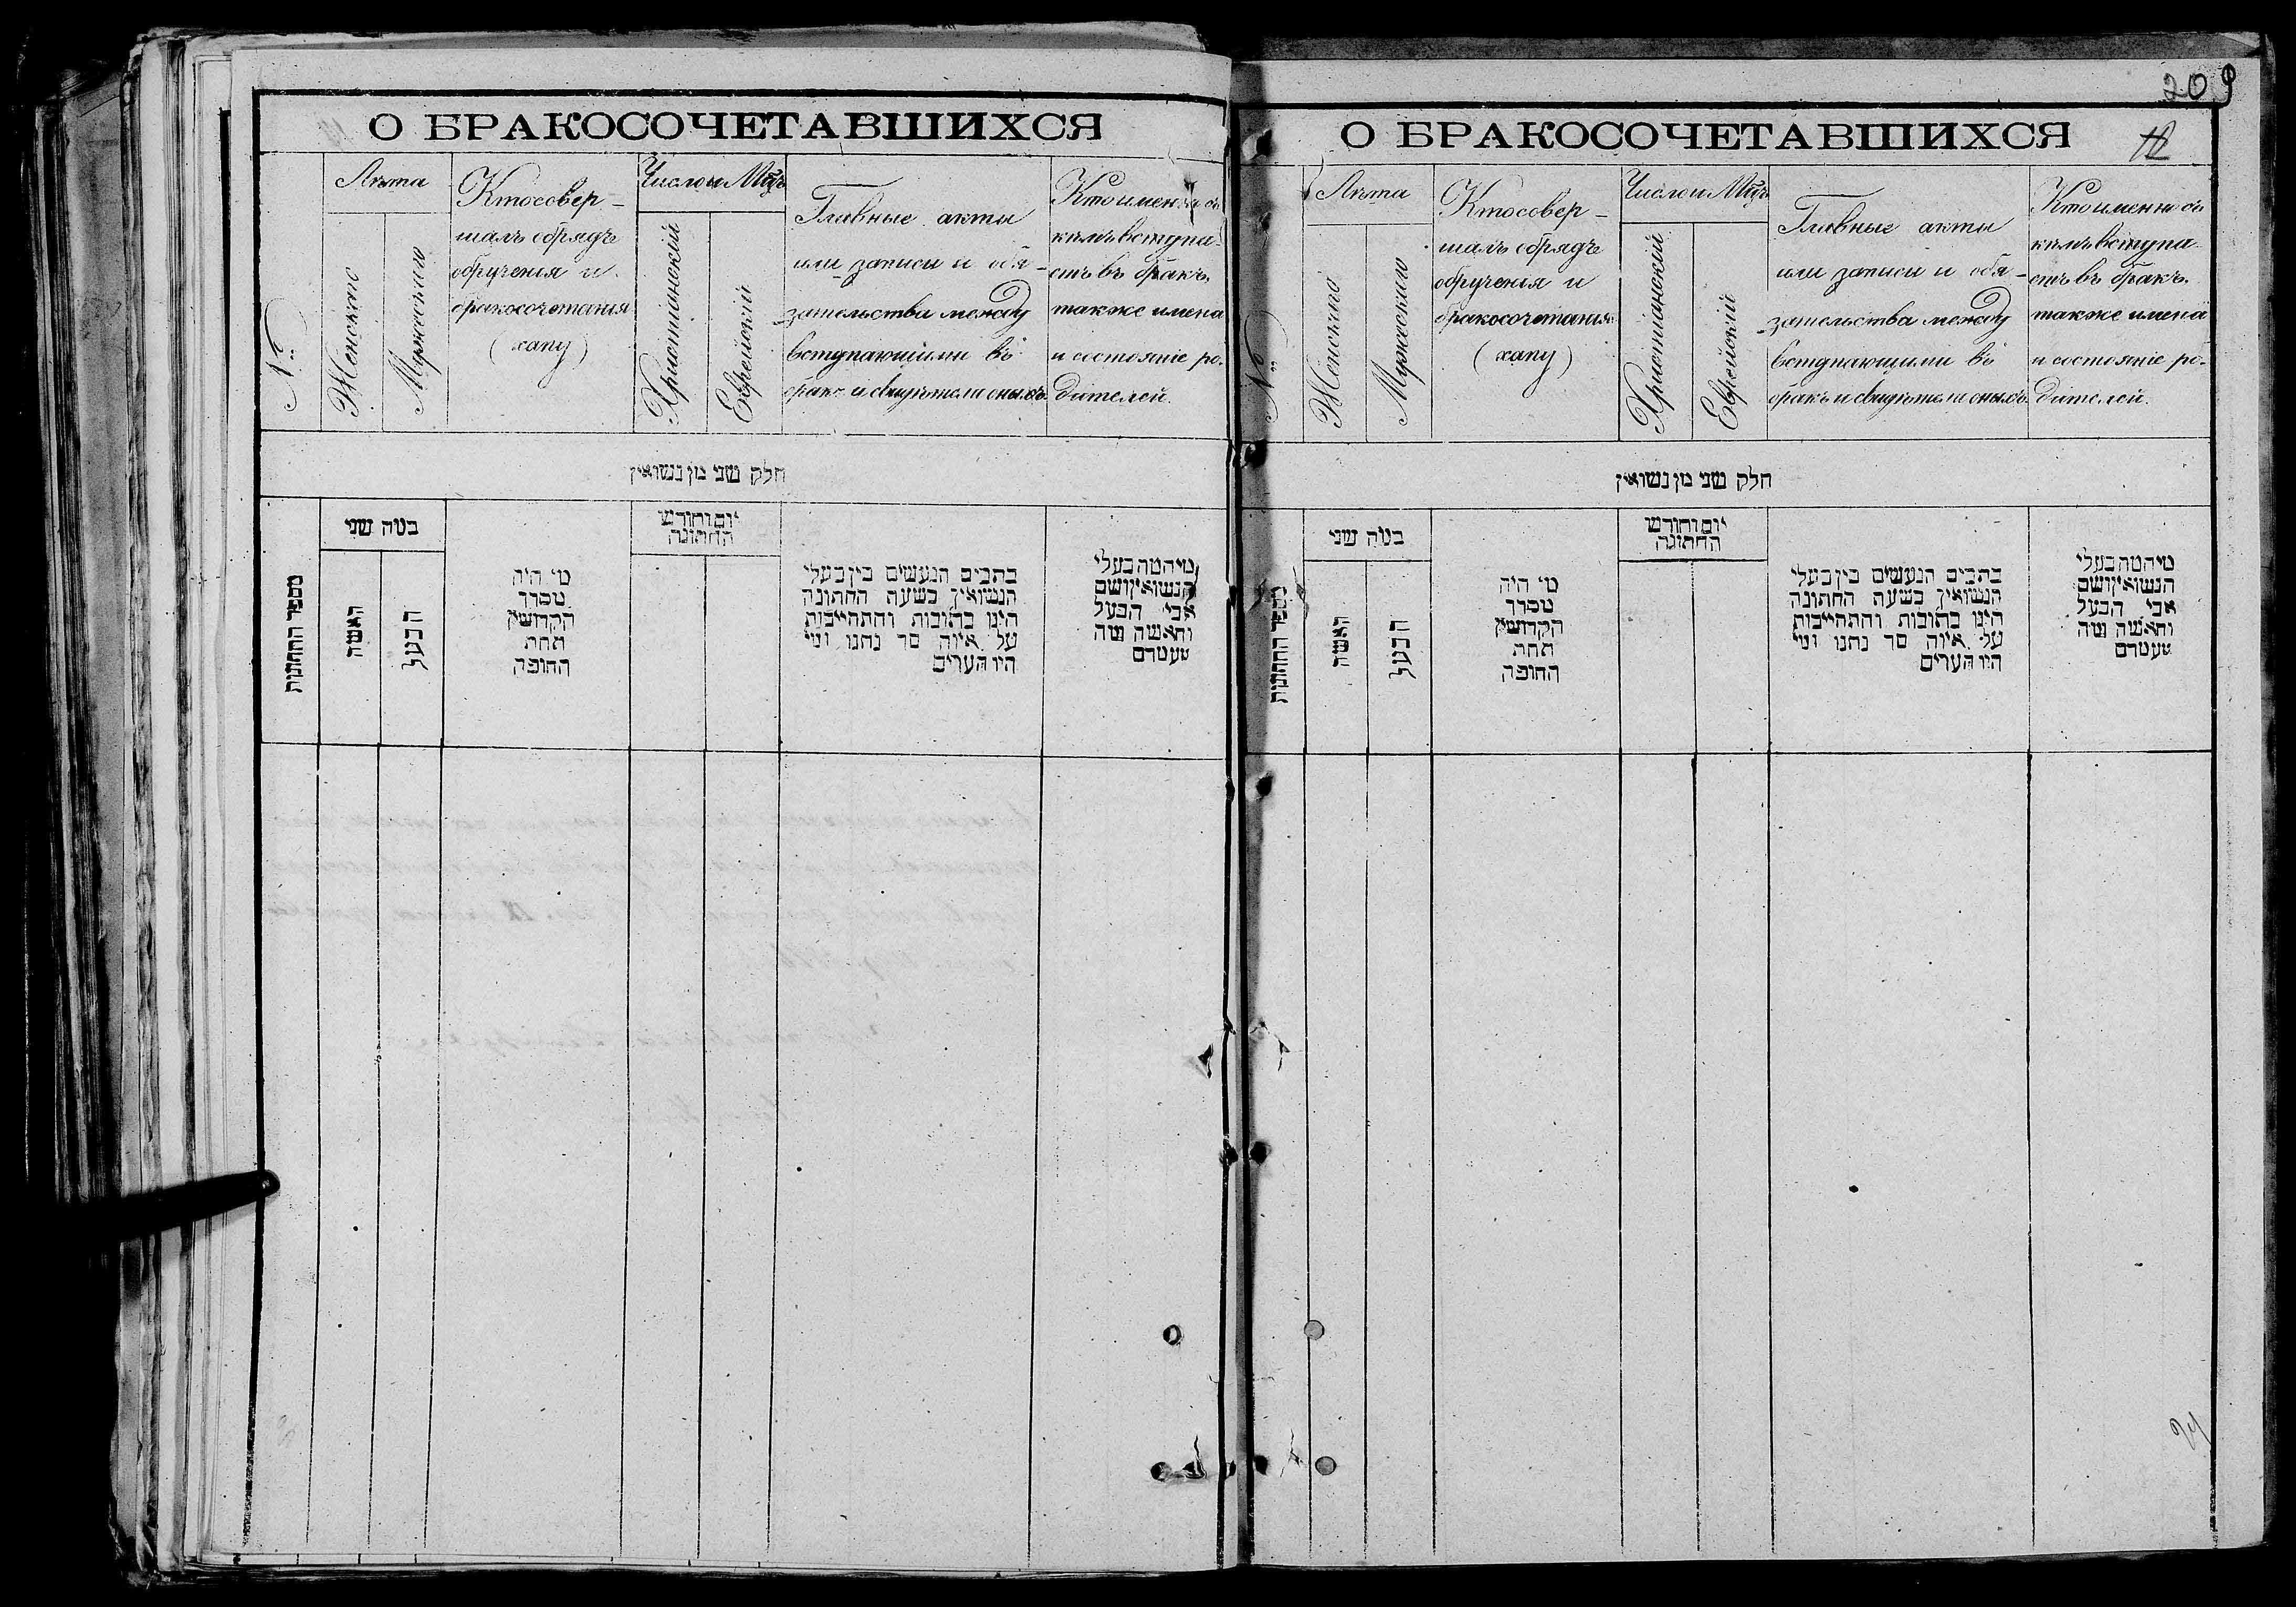 О БРАКОСОЧЕТАВШИХСЯ
№
Лѣта
Женскаго
Мужескаго
Кто совер-
шалъ обрядъ
обрученія и
бракосочетанія
(хапу)
Число и Мѣц
Христіанскій
Еврейскій
Главные акты
или записи и обя-
зательства между
вступающими въ
бракъ и свидѣтели оныхъ
Кто именно съ
кѣмъ вступа-
етъ въ бракъ,
также имена
и состояніе ро-
дителей.
חלק שני מן נשואין
מספר החתונות
כמה שני
האשה
הבעל
מי היה
מסדר
הקדושין
תחת
החופה
יום וחודש
החתונה
כתבים הנעשים בין בעלי
הנשואין בשעת החתונה
היינו כתובות והתחייבות
על איזה סך נתנו ומי
היו העדים
מי המה בעלי
הנשואין ושם
אבי הבעל
והאשה ומה
מעמדם
209
О БРАКОСОЧЕТАВШИХСЯ
12
№
Лѣта
Женскаго
Мужескаго
Кто совер-
шалъ обрядъ
обрученія и
бракосочетанія
(хапу)
Число и Мѣц
Христіанскій
Еврейскій
Главные акты
или записи и обя-
зательства между
вступающими въ
бракъ и свидѣтели оныхъ
Кто именно съ
кѣмъ вступа-
етъ въ бракъ,
также имена
и состояніе ро-
дителей.
חלק שני מן נשואין
מספר החתונות
כמה שני
האשה
הבעל
מי היה
מסדר
הקדושין
תחת
החופה
יום וחודש
החתונה
כתבים הנעשים בין בעלי
הנשואין בשעת החתונה
היינו כתובות והתחייבות
על איזה סך נתנו ומי
היו העדים
מי המה בעלי
הנשואין ושם
אבי הבעל
והאשה ומה
מעמדם